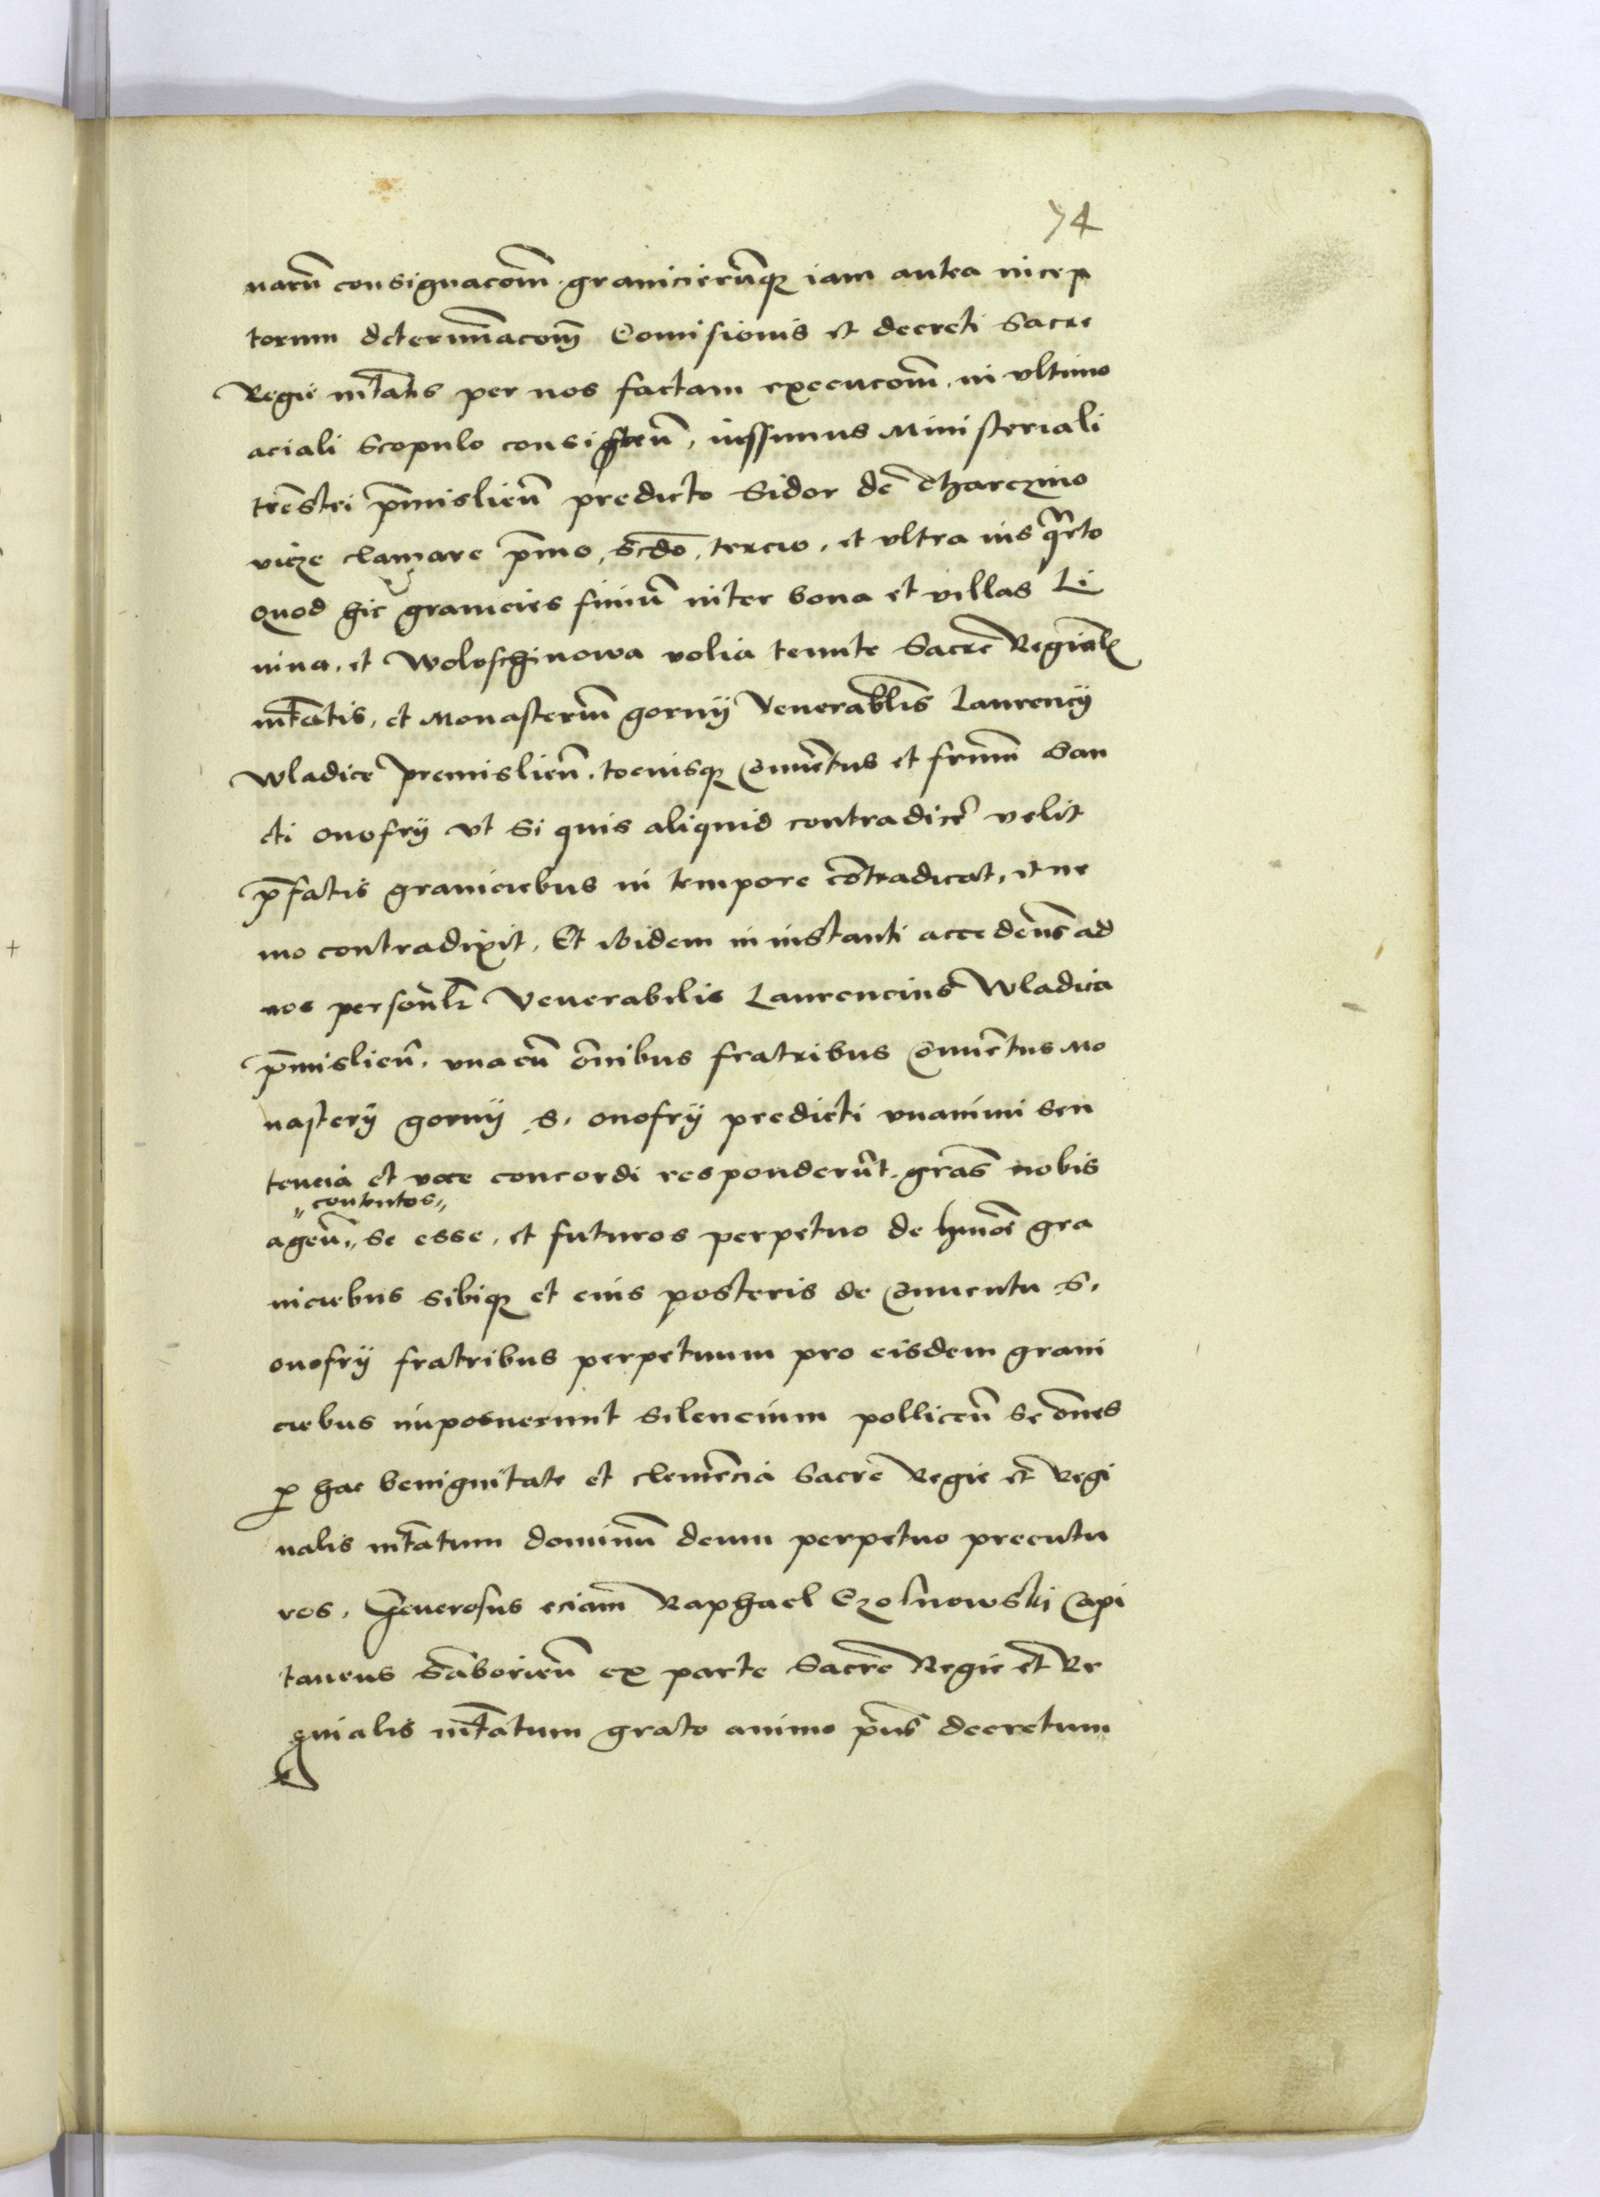 74
narũ consignacõm. granicierũq iam antea incep
torum determinacõm Comisionis et decreti Sacre
Regie mtatis per nos factam execucõm. in ultimo
aciali scopulo consisteñ, iussimus Ministeriali
trestri pmislieñ predicto Sidor de Tharczino
vicze clamare pmo, scdo, tercio, et ultra ius qrto
quod hic granicies finiũ inter bona et villas Li
nina, et Woloschinowa volia tenute Sacre Reginal
mtatis, et Monasteriũ gornij Venerablis Laurencij
Wladice premislieñ. tociusq Conuetus et frum San
cti onofrij ut si quis aliquid contradicer velit
pfatis graniciebus in tempore cotradicat, et ne
mo contradixit. Et ibidem in instanti accedens ad
nos personlr Venerabilis Laurencius Wladica
pmislieñ. unacũ oibus fratribus Conuetus Mo
nasterij gornij S. onofrij predicti unanimi sen
tencia et voce concordi responderũt. gras nobis
"contentos"
ageñ. se esse, et futuros perpetuo de hmoi gra
niciebus sibiq et eius posteris de Conuentu S.
onofrij fratribus perpetuum pro eisdem grani
ciebus imposuerunt silencium polliceñ se oes
p hac benignitate et clemecia Sacre Regie et Regi
nalis mtatum dominũ deum perpetuo precatu
ros. Generosus eciam Raphael Czolnowski Capi
taneus Saborieñ ex parte Sacre Regie et Re
ginalis mtatum grato animo pns decretum